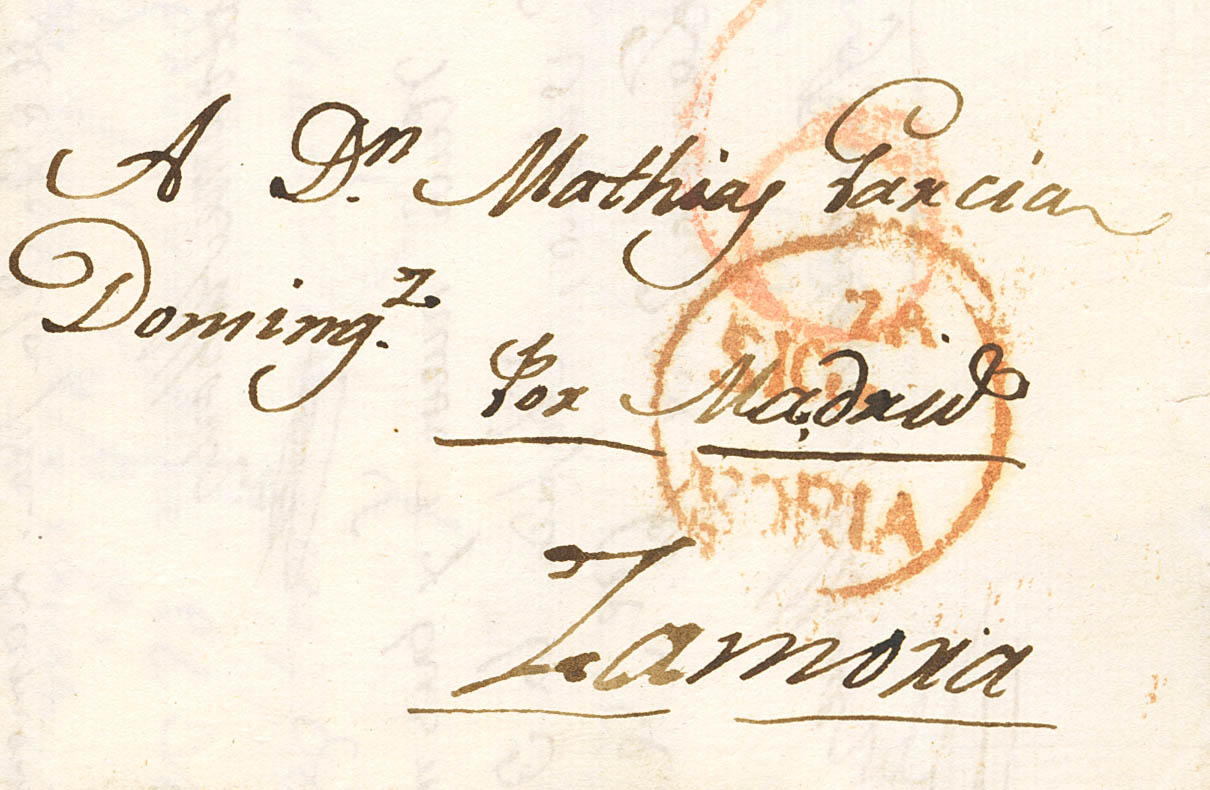 A Dn. Mathias Garcia
Doming.z
Por Madrid
Zamora
ZA
SORIA